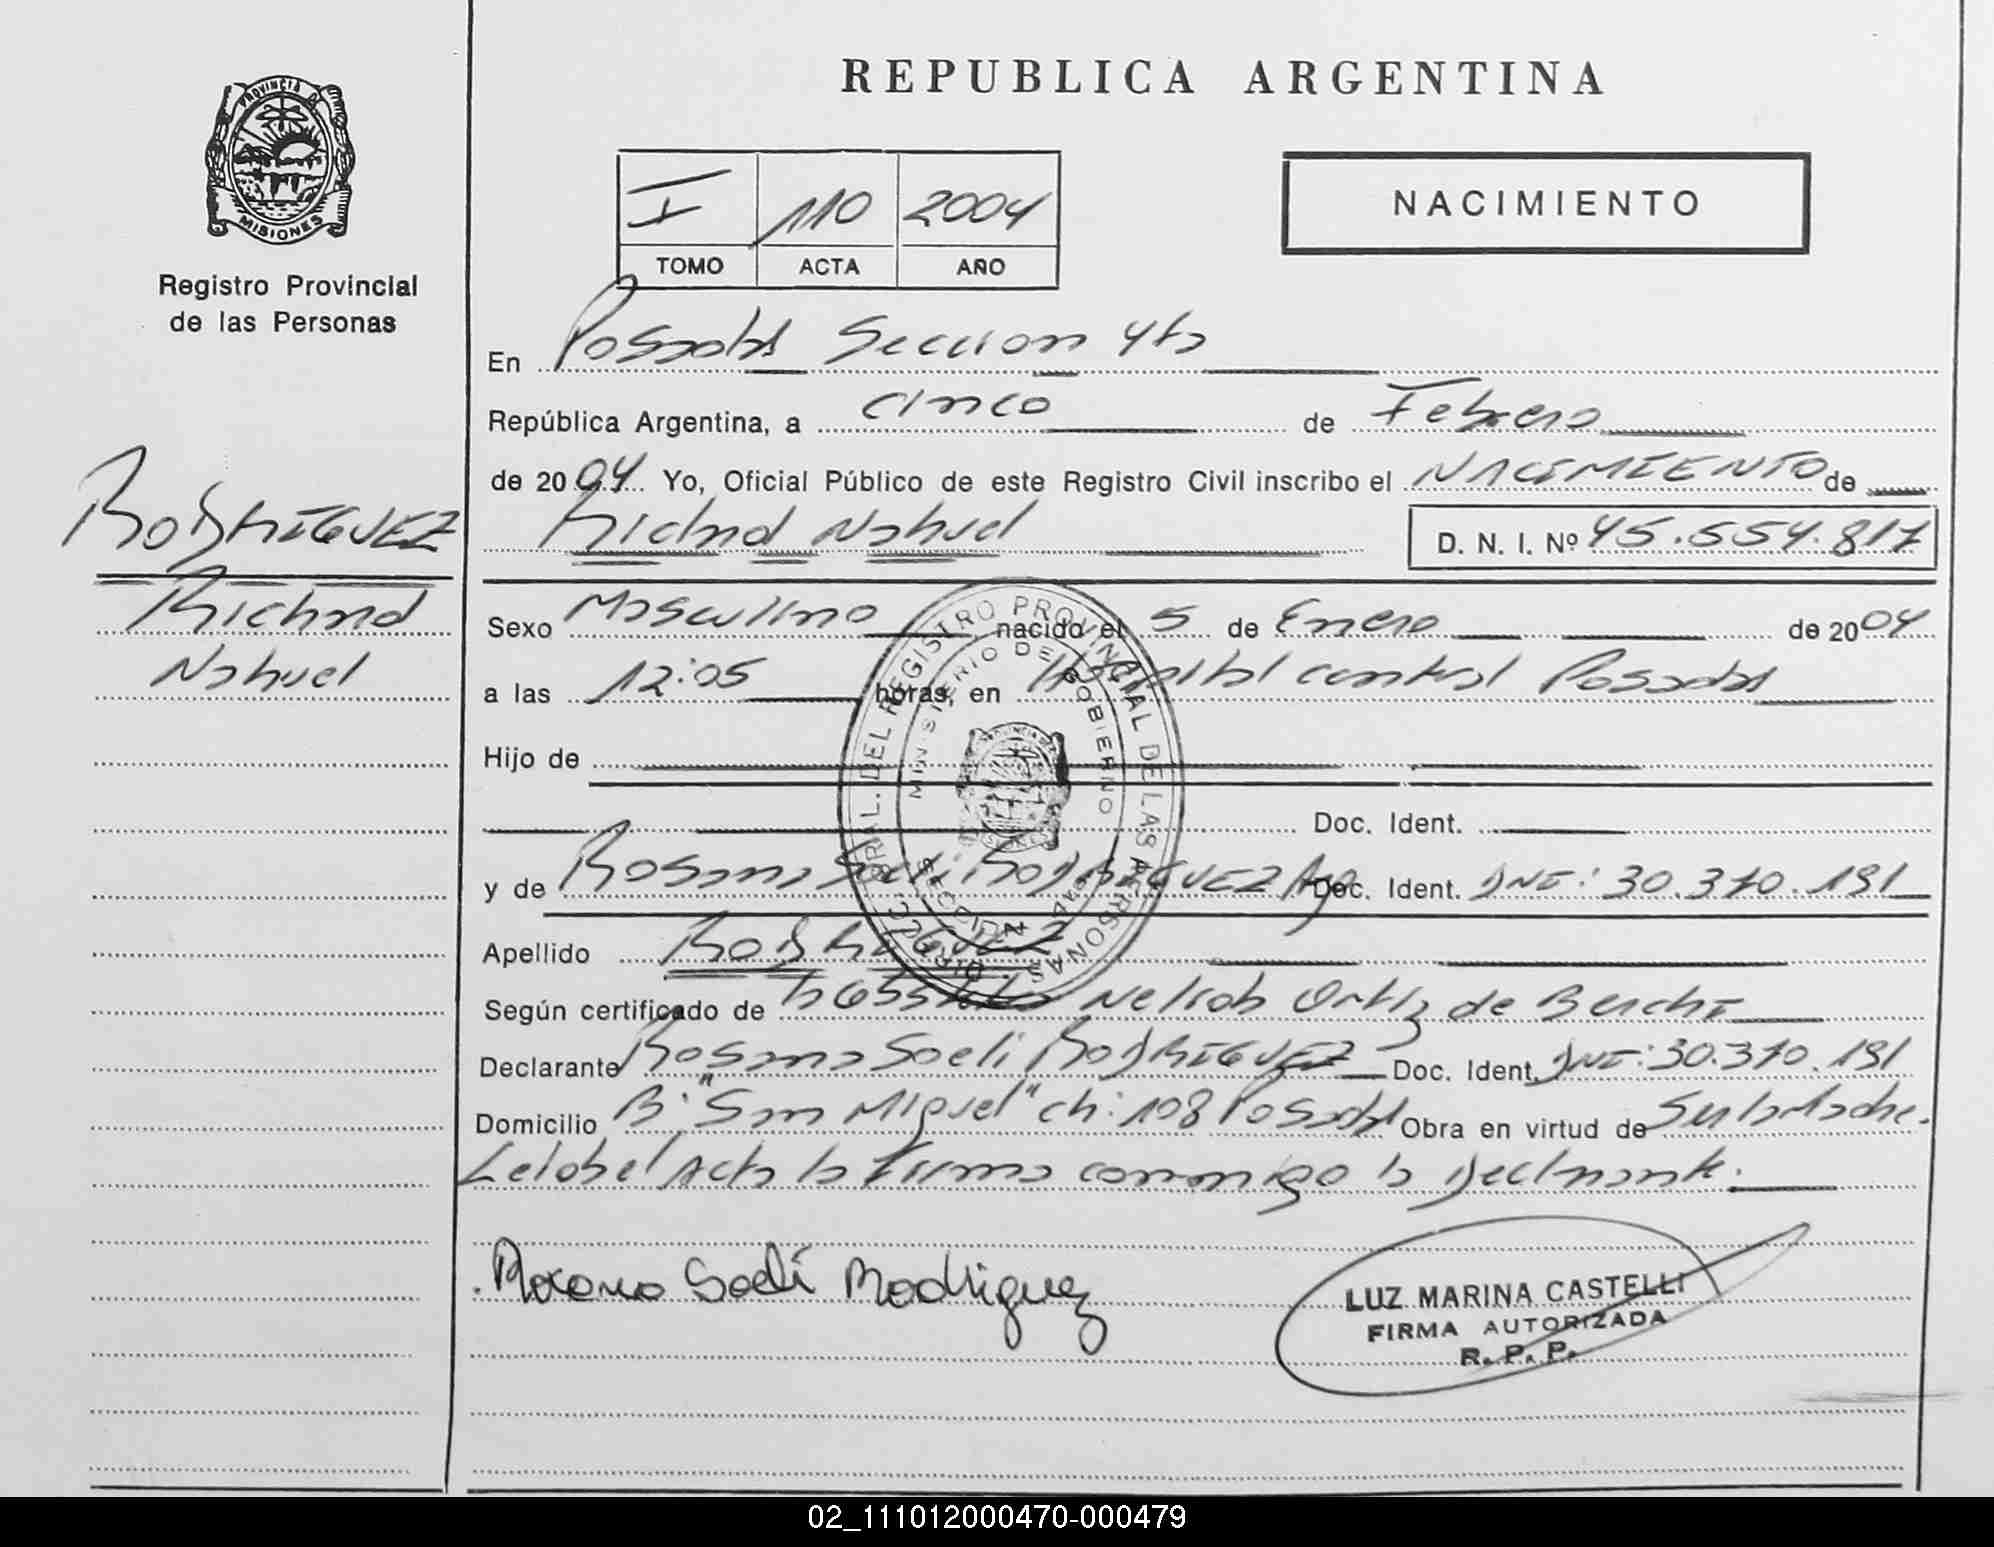 REPUBLICA ARGENTINA
PROVINCIA DE
MISIONES
Registro Provincial
de las Personas
I 110 2004
TOMO ACTA AÑO
NACIMIENTO
En Posadas Seccion 4ta
República Argentina, a cinco de Febrero
de 2004 Yo, Oficial Público de este Registro Civil inscribo el NACIMIENTO de
RODRIGUEZ
Richard Nahuel D. N. I. Nº 45.554.817
Richard
Nahuel
Sexo Masculino nacido el 5 de Enero de 2004
a las 12:05 horas, en Hospital central Posadas
Hijo de
Doc. Ident.
y de Rosana Soeli RODRIGUEZ Arg Doc. Ident. DNI: 30.370.191
Apellido RODRIGUEZ
Según certificado de Nelida Ortiz de Berchi
Declarante Rosana Soeli RODRIGUEZ Doc. Ident. DNI: 30.370.191
Domicilio B: "San Miguel" ch: 108 Posadas Obra en virtud de Ser la Madre.
Leida el Acta la Firma conmigo la Declarante.
DIRECC. GRAL. DEL REGISTRO PROVINCIAL DE LAS PERSONAS
MINISTERIO DE GOBIERNO
SECCION
Roxana Soeli Rodriguez
LUZ MARINA CASTELLI
FIRMA AUTORIZADA
R. P. P.
02_111012000470-000479